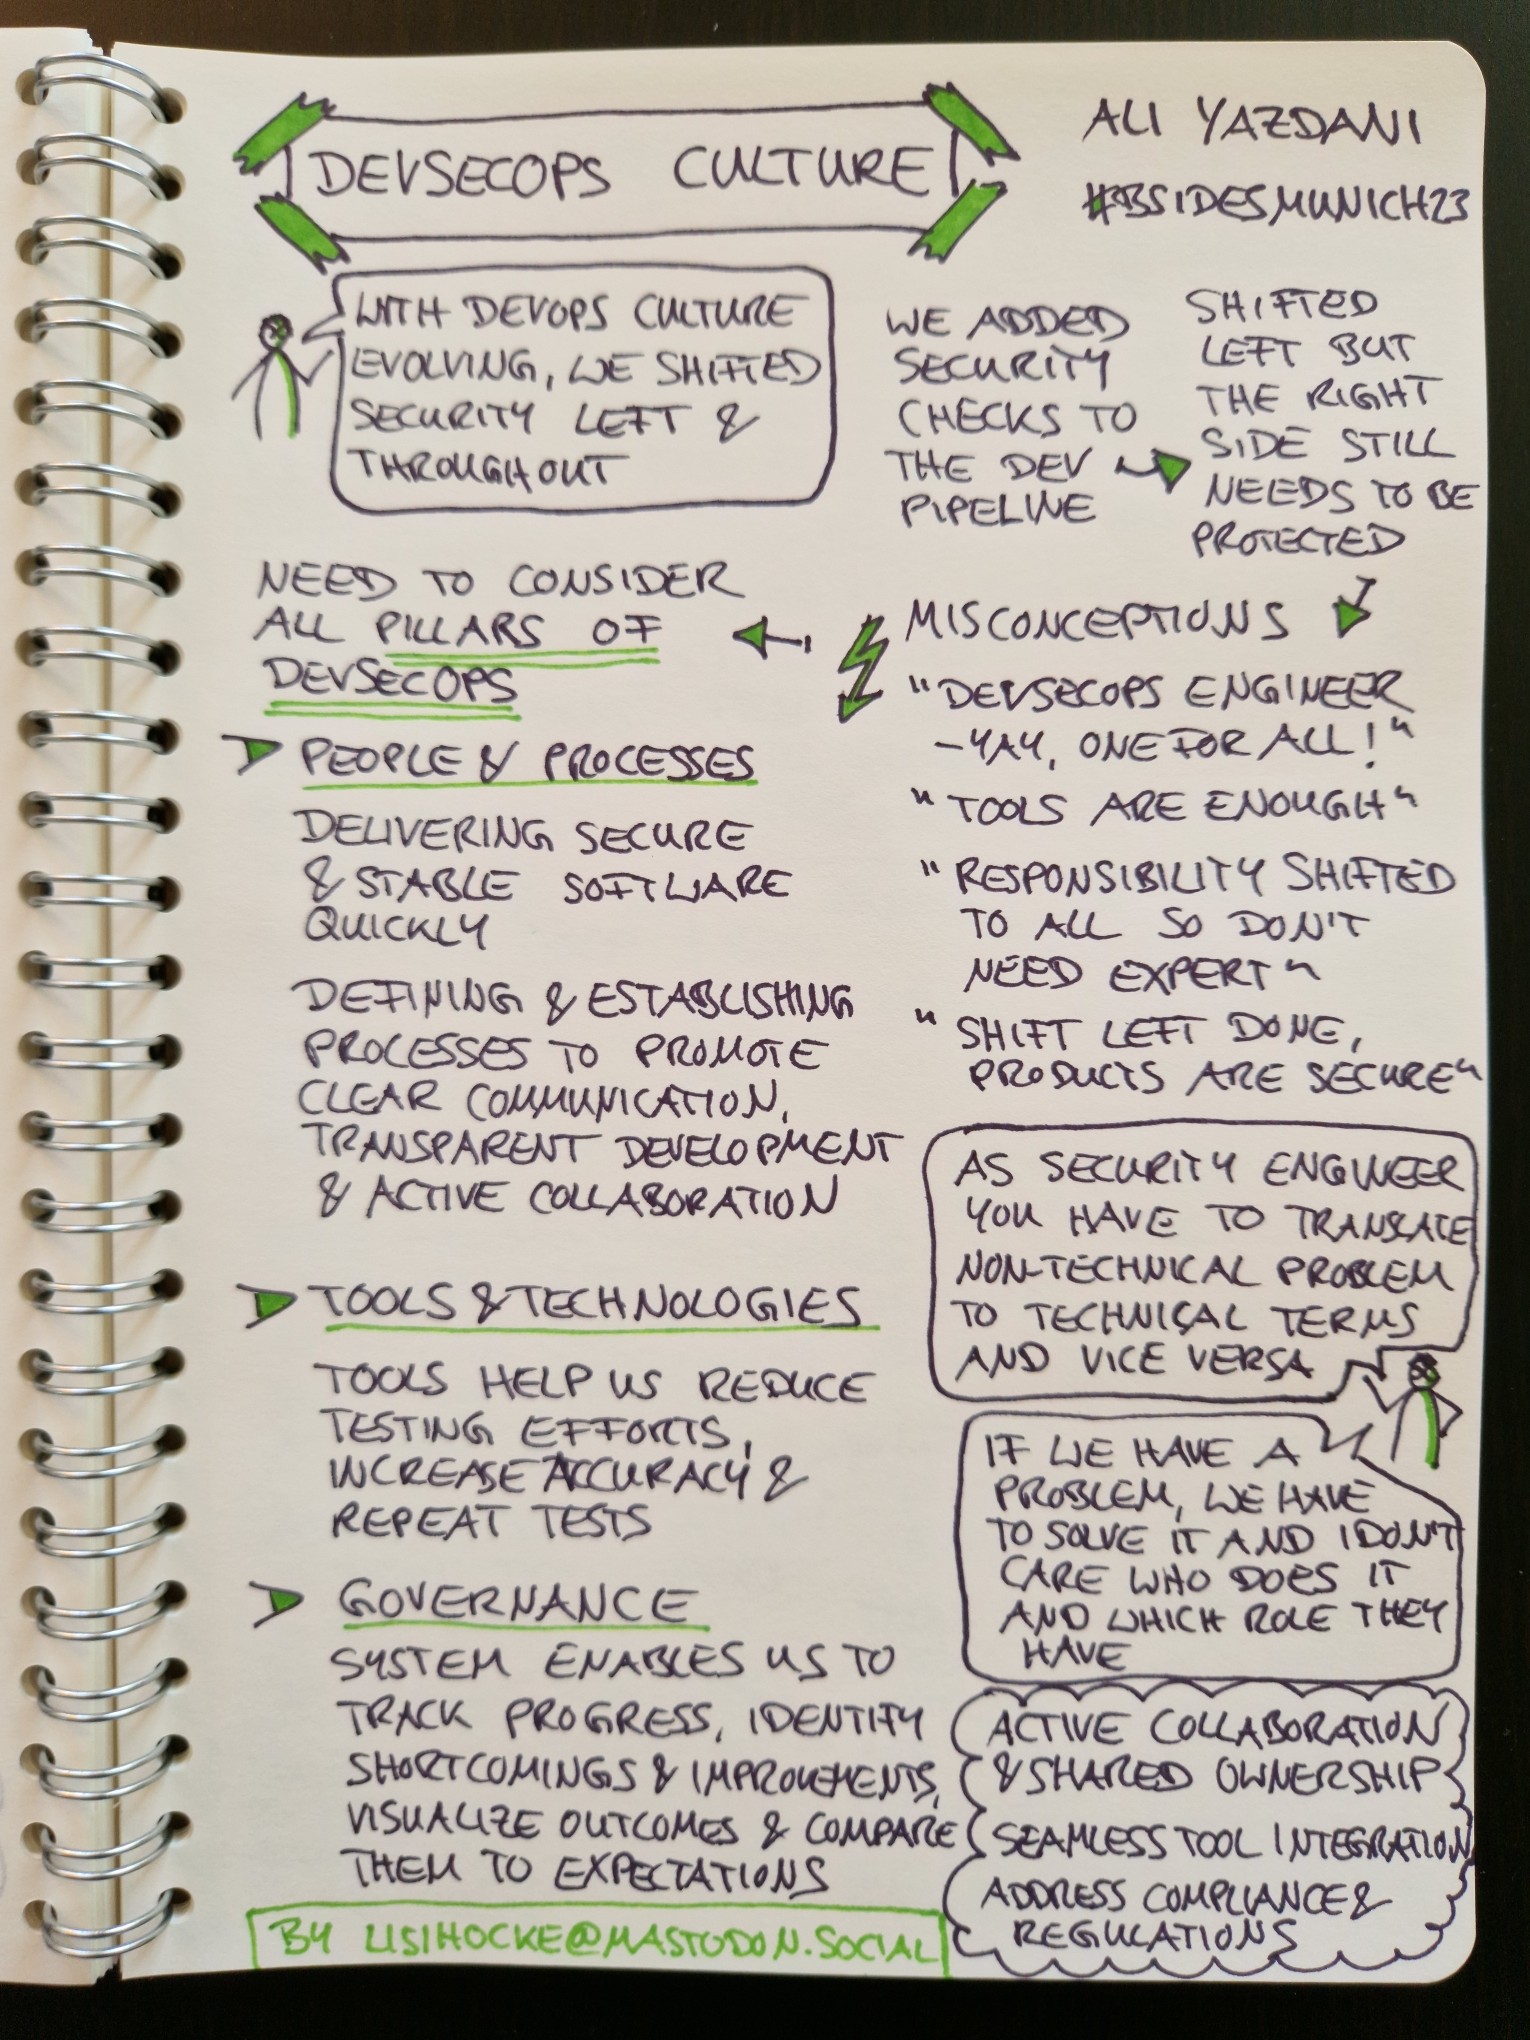 DEVSECOPS CULTURE
ALI YAZDANI
#BSIDESMUNICH23
WITH DEVOPS CULTURE
EVOLVING, WE SHIFTED
SECURITY LEFT &
THROUGHOUT
WE ADDED
SECURITY
CHECKS TO
THE DEV
PIPELINE
SHIFTED
LEFT BUT
THE RIGHT
SIDE STILL
NEEDS TO BE
PROTECTED
MISCONCEPTIONS
"DEVSECOPS ENGINEER
- YAY, ONE FOR ALL!"
"TOOLS ARE ENOUGH"
"RESPONSIBILITY SHIFTED
TO ALL SO DON'T
NEED EXPERT"
"SHIFT LEFT DONE,
PRODUCTS ARE SECURE"
NEED TO CONSIDER
ALL PILLARS OF
DEVSECOPS
PEOPLE & PROCESSES
DELIVERING SECURE
& STABLE SOFTWARE
QUICKLY
DEFINING & ESTABLISHING
PROCESSES TO PROMOTE
CLEAR COMMUNICATION,
TRANSPARENT DEVELOPMENT
& ACTIVE COLLABORATION
TOOLS & TECHNOLOGIES
TOOLS HELP US REDUCE
TESTING EFFORTS,
INCREASE ACCURACY &
REPEAT TESTS
GOVERNANCE
SYSTEM ENABLES US TO
TRACK PROGRESS, IDENTIFY
SHORTCOMINGS & IMPROVEMENTS,
VISUALIZE OUTCOMES & COMPARE
THEM TO EXPECTATIONS
AS SECURITY ENGINEER
YOU HAVE TO TRANSLATE
NON-TECHNICAL PROBLEM
TO TECHNICAL TERMS
AND VICE VERSA
IF WE HAVE A
PROBLEM, WE HAVE
TO SOLVE IT AND I DON'T
CARE WHO DOES IT
AND WHICH ROLE THEY
HAVE
ACTIVE COLLABORATION
& SHARED OWNERSHIP
SEAMLESS TOOL INTEGRATION
ADDRESS COMPLIANCE &
REGULATIONS
BY LISIHOCKE@MASTODON.SOCIAL